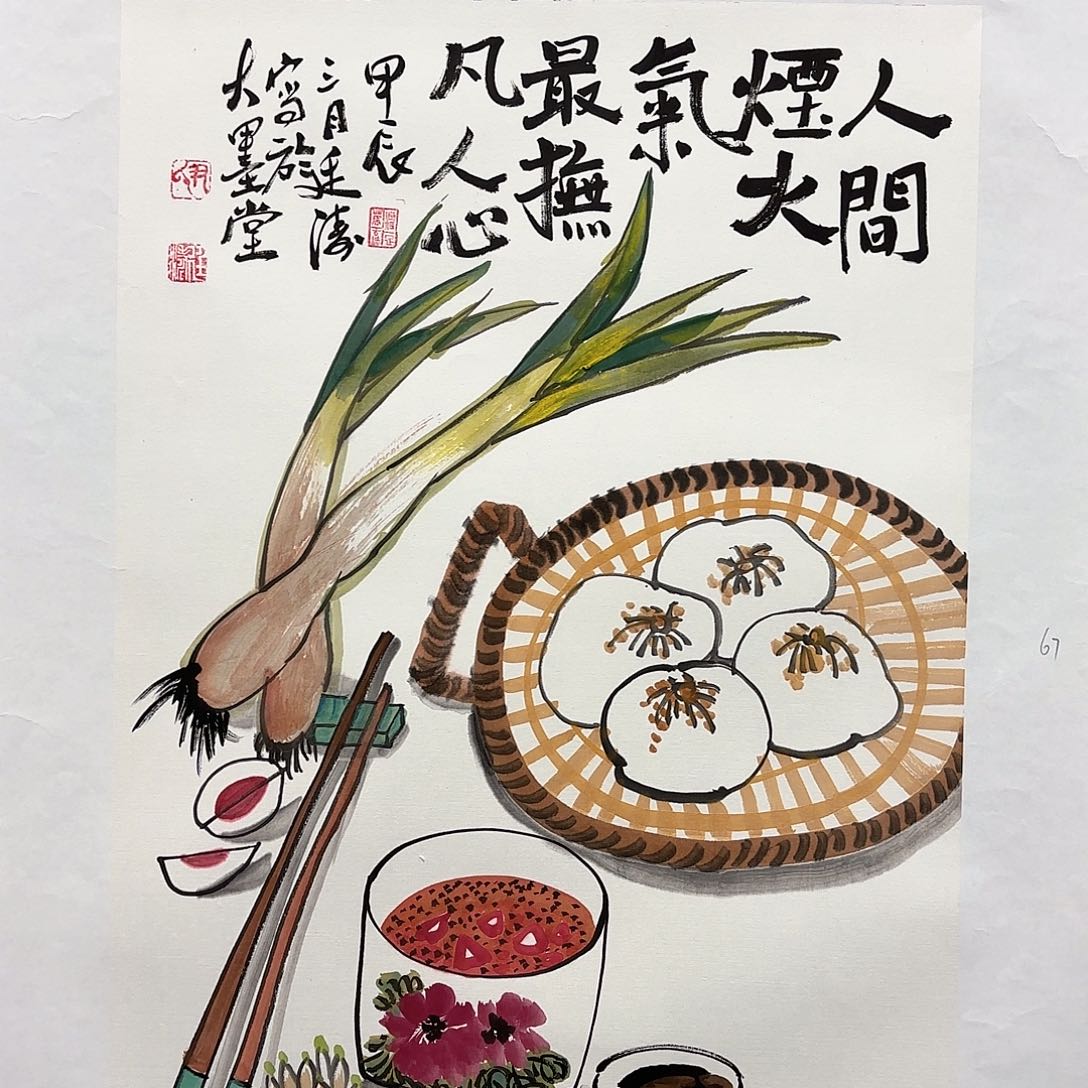 人間
煙火
氣
最撫
凡人心
甲辰
三月廷濤
寫於
大墨堂
67